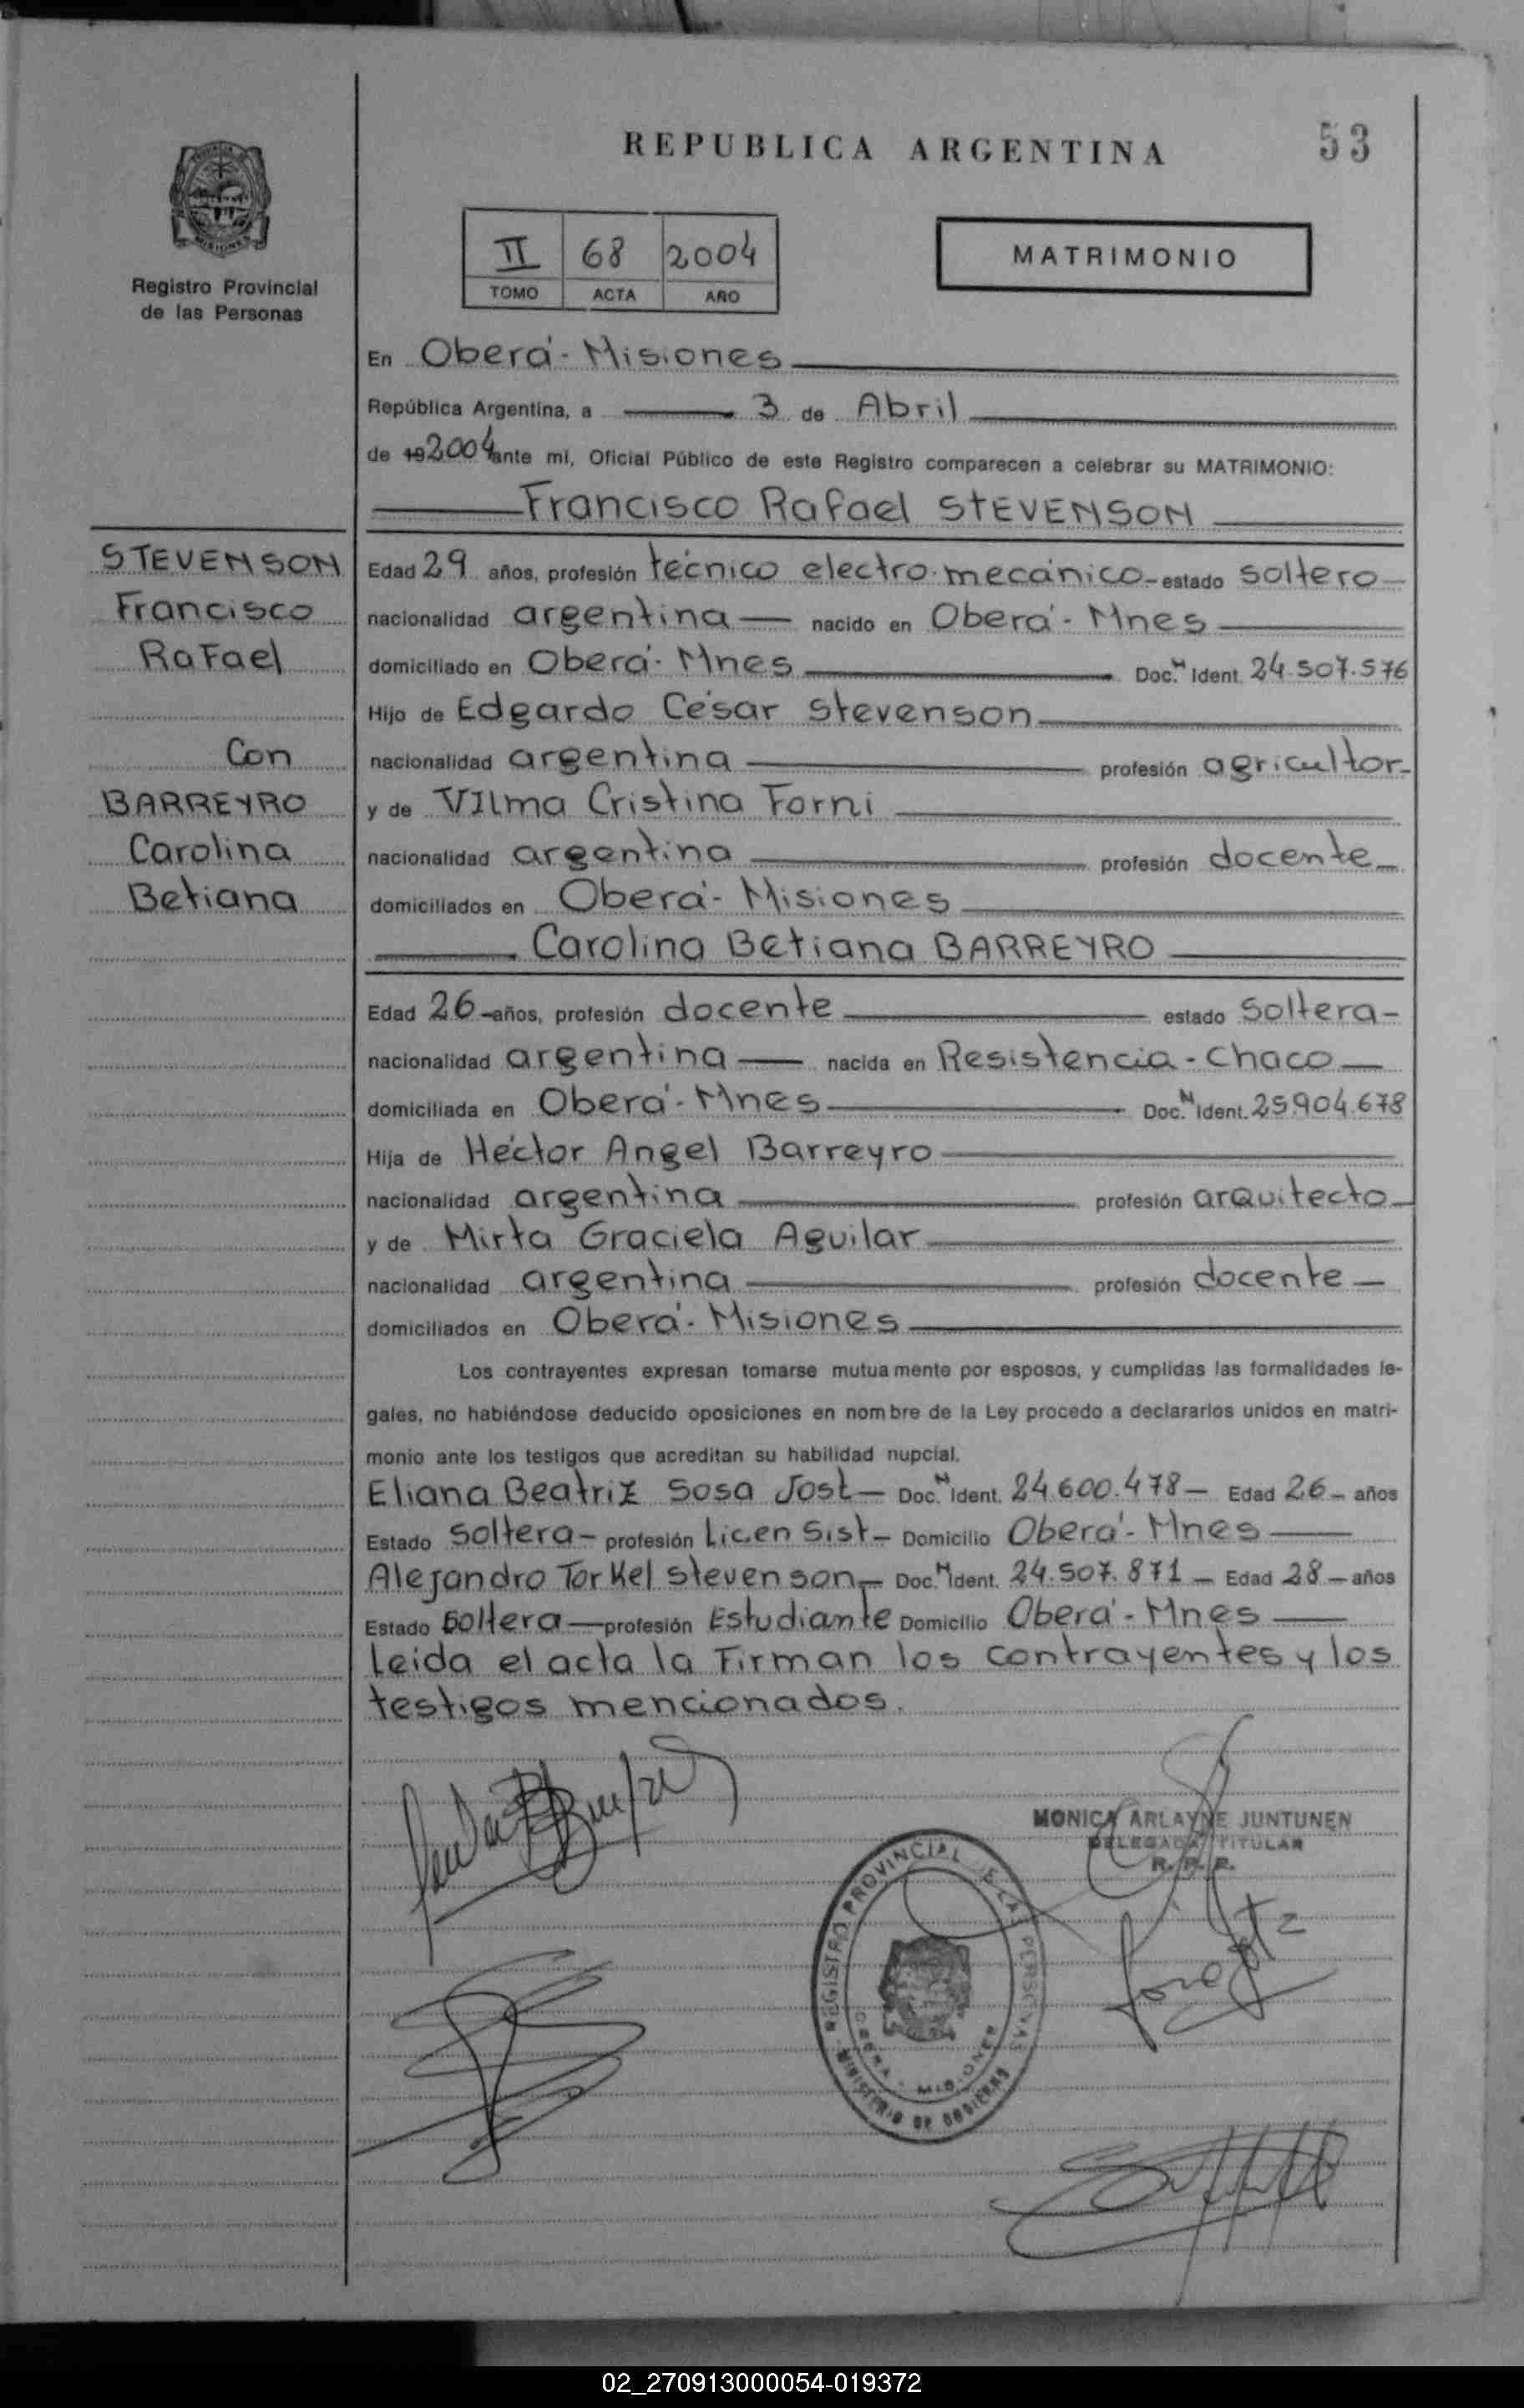 REPUBLICA ARGENTINA
53
MISIONES
Registro Provincial
de las Personas
II 68 2004
TOMO ACTA AÑO
MATRIMONIO
En Oberá - Misiones
República Argentina, a 3 de Abril
de 19 2004 ante mí, Oficial Público de este Registro comparecen a celebrar su MATRIMONIO:
Francisco Rafael STEVENSON
STEVENSON
Francisco
Rafael
Con
BARREYRO
Carolina
Betiana
Edad 29 años, profesión técnico electro-mecánico - estado soltero
nacionalidad argentina nacido en Oberá - Mnes
domiciliado en Oberá - Mnes Doc. N Ident. 24.507.576
Hijo de Edgardo César Stevenson
nacionalidad argentina profesión agricultor
y de Vilma Cristina Forni
nacionalidad argentina profesión docente
domiciliados en Oberá - Misiones
Carolina Betiana BARREYRO
Edad 26 años, profesión docente estado soltera
nacionalidad argentina nacida en Resistencia - Chaco
domiciliada en Oberá - Mnes Doc. N Ident. 25.904.678
Hija de Héctor Angel Barreyro
nacionalidad argentina profesión arquitecto
y de Mirta Graciela Aguilar
nacionalidad argentina profesión docente
domiciliados en Oberá - Misiones
Los contrayentes expresan tomarse mutuamente por esposos, y cumplidas las formalidades le-
gales, no habiéndose deducido oposiciones en nombre de la Ley procedo a declararlos unidos en matri-
monio ante los testigos que acreditan su habilidad nupcial.
Eliana Beatriz Sosa Jost Doc. N Ident. 24.600.478 Edad 26 años
Estado soltera profesión Licen Sist Domicilio Oberá - Mnes
Alejandro Torkel Stevenson Doc. N Ident. 24.507.871 Edad 28 años
Estado soltera profesión Estudiante Domicilio Oberá - Mnes
Leida el acta la firman los contrayentes y los
testigos mencionados.
MONICA ARLAYNE JUNTUNEN
DELEGADA TITULAR
R. P. P.
REGISTRO PROVINCIAL DE LAS PERSONAS
OBERA - MISIONES
MINISTERIO DE GOBIERNO
02_270913000054-019372